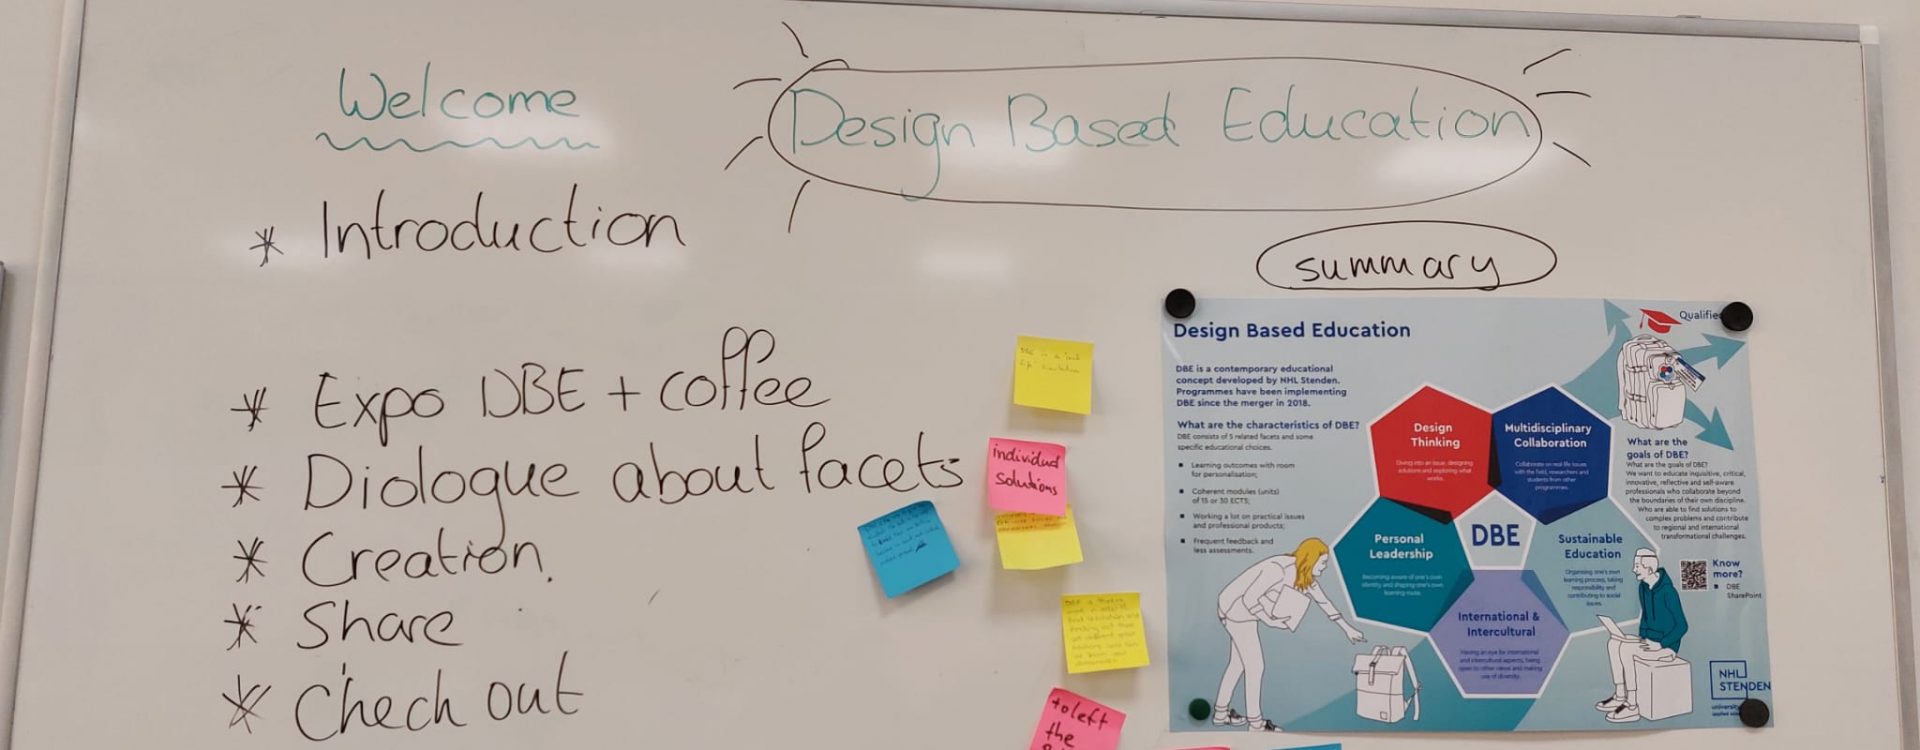 Welcome
Design Based Education
* Introduction
* Expo DBE + coffee
* Diologue about facets
* Creation.
* Share
* Check out
individual
solutions
to left
the
summary
Design Based Education
DBE is a contemporary educational
concept developed by NHL Stenden.
Programmes have been implementing
DBE since the merger in 2018.
What are the characteristics of DBE?
DBE consists of 5 related facets and some
specific educational choices.
Learning outcomes with room
for personalisation;
Coherent modules (units)
of 15 or 30 ECTS;
Working a lot on practical issues
and professional products;
Frequent feedback and
less assessments.
Design
Thinking
Diving into an issue, designing
solutions and exploring what
works.
Multidisciplinary
Collaboration
Collaborate on real-life issues
with the field, researchers and
students from other
programmes.
Personal
Leadership
Becoming aware of one's own
identity and shaping one's own
learning route.
DBE
Sustainable
Education
Organising one's own
learning process, taking
responsibility and
contributing to social
issues.
International &
Intercultural
Having an eye for international
and intercultural aspects, being
open to other views and making
use of diversity.
What are the
goals of DBE?
What are the goals of DBE?
We want to educate inquisitive, critical,
innovative, reflective and self-aware
professionals who collaborate beyond
the boundaries of their own discipline.
Who are able to find solutions to
complex problems and contribute
to regional and international
transformational challenges.
Know
more?
DBE
SharePoint
NHL
STENDEN
university